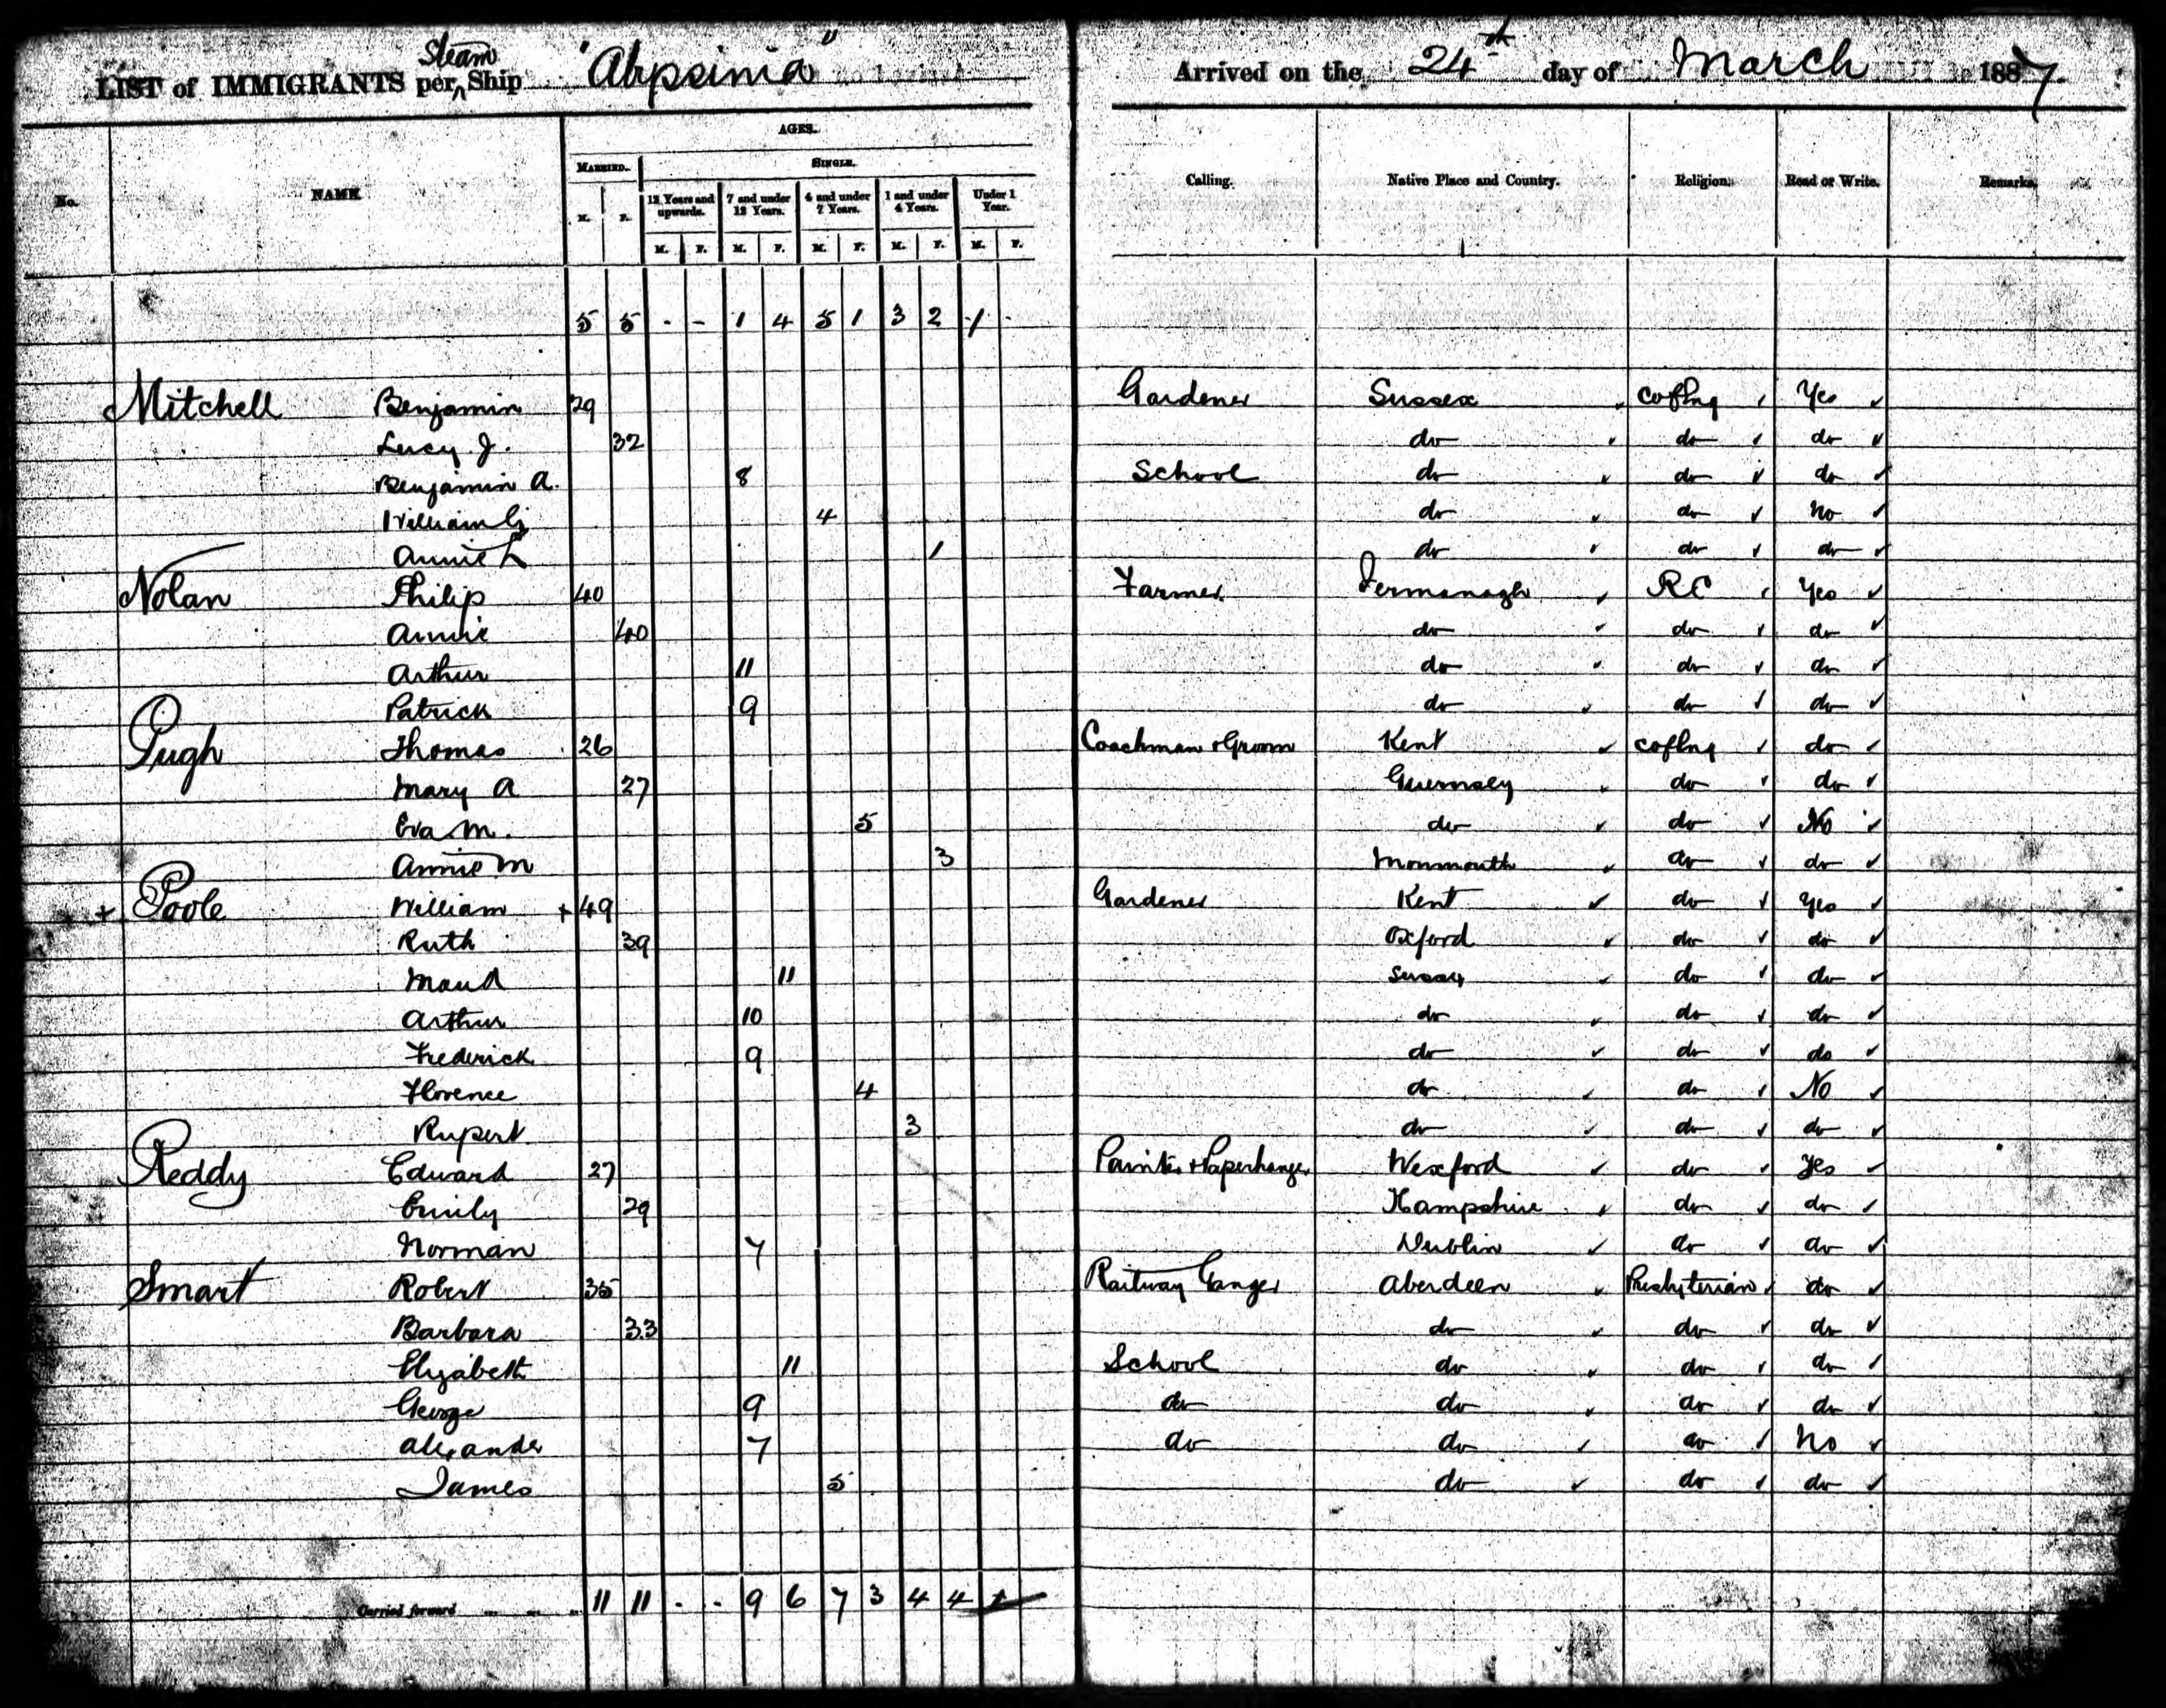 LIST of IMMIGRANTS per Steam Ship "Abysinia" Arrived on the 24th day of March 1887.
AGES.
MARRIED. SINGLE.
No. NAME M. F. 12 Years and upwards. 7 and under 12 Years. 4 and under 7 Years. 1 and under 4 Years. Under 1 Year. Calling. Native Place and Country. Religion. Read or Write. Remarks.
M. F. M. F. M. F. M. F. M. F.
5 5 - - 1 4 5 1 3 2 1 -
Mitchell Benjamin 29 Gardener Sussex CofEng Yes
Lucy J. 32 do do do
Benjamin A. 8 School do do do
William G 4 do do No
Annie L 1 do do do
Nolan Philip 40 Farmer Fermanagh RC Yes
Annie 40 do do do
Arthur 11 do do do
Patrick 9 do do do
Pugh Thomas 26 Coachman & Groom Kent CofEng do
Mary A 27 Guernsey do do
Eva M. 5 do do No
Annie M 3 Monmouth do do
+ Poole William + 49 Gardener Kent do Yes
Ruth 39 Oxford do do
Maud 11 Sussex do do
Arthur 10 do do do
Frederick 9 do do do
Florence 4 do do No
Rupert 3 do do do
Reddy Edward 27 Painter & Paperhanger Wexford do Yes
Emily 29 Hampshire do do
Norman 7 Dublin do do
Smart Robert 35 Railway Ganger Aberdeen Presbyterian do
Barbara 33 do do do
Elizabeth 11 School do do do
George 9 do do do do
Alexander 7 do do do No
James 5 do do do
Carried forward 11 11 - - 9 6 7 3 4 4 1